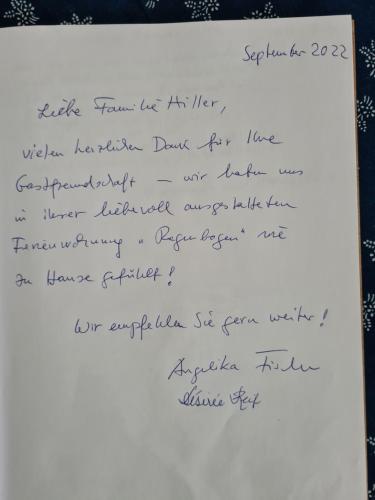 September 2022
Liebe Familie Hiller,
vielen herzlichen Dank für Ihre
Gastfreundschaft – wir haben uns
in ihrer liebevoll ausgestalteten
Ferienwohnung „Regenbogen" wie
zu Hause gefühlt!
Wir empfehlen Sie gern weiter!
Angelika Fischer
Désirée